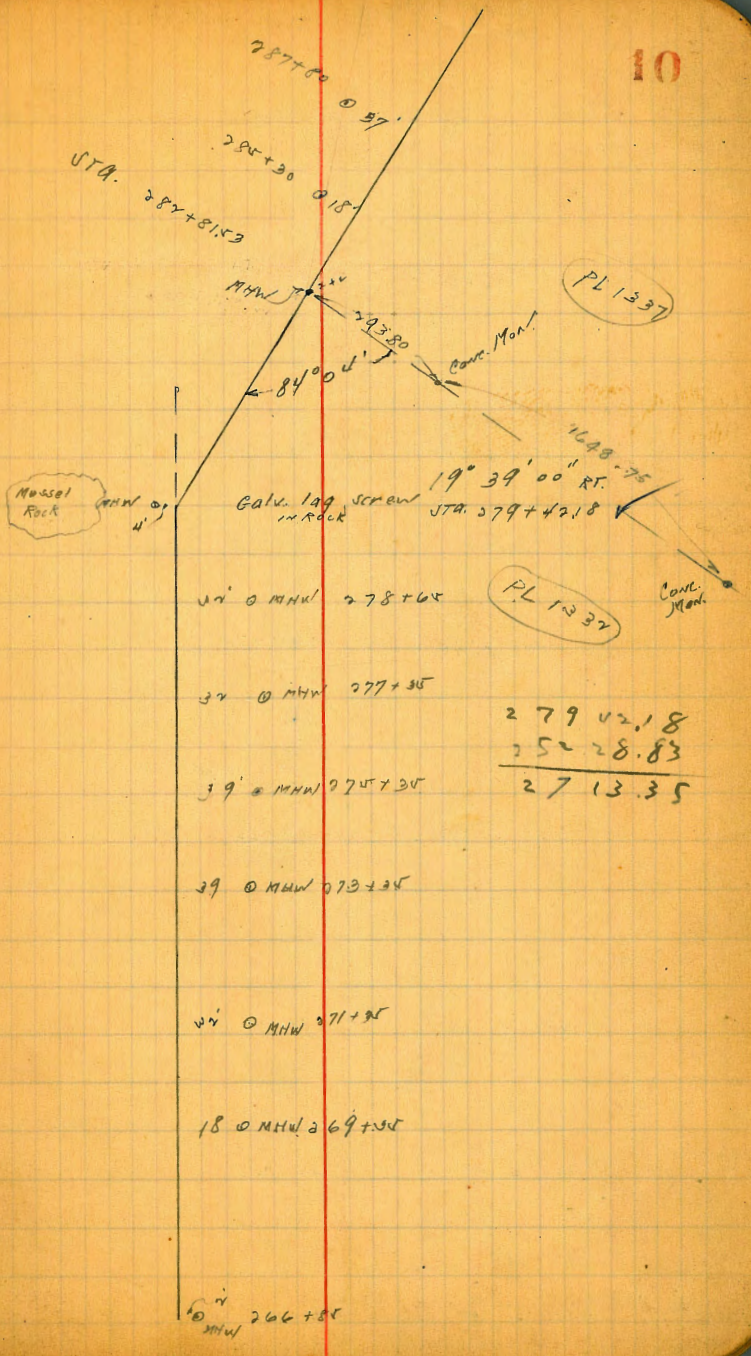 10
287+80 ⊙ 37'
285+30 ⊙ 18'
STA. 282+81.53
MHW
PL 1337
293.80
Conc. Mon.
84° 04'
1648.75
19° 39' 00" RT.
Mussel Rock
MHW
4'
Galv. lag screw
IN ROCK
STA. 279+42.18
Conc. Mon.
⊙ MHW 278+65
PL 1332
32 ⊙ MHW 277+35
279 42.18
252 28.83
27 13.35
39' ⊙ MHW 275+35
39 ⊙ MHW 273+35
⊙ MHW 271+35
18 ⊙ MHW 269+35
⊙ 2'
MHW 266+85